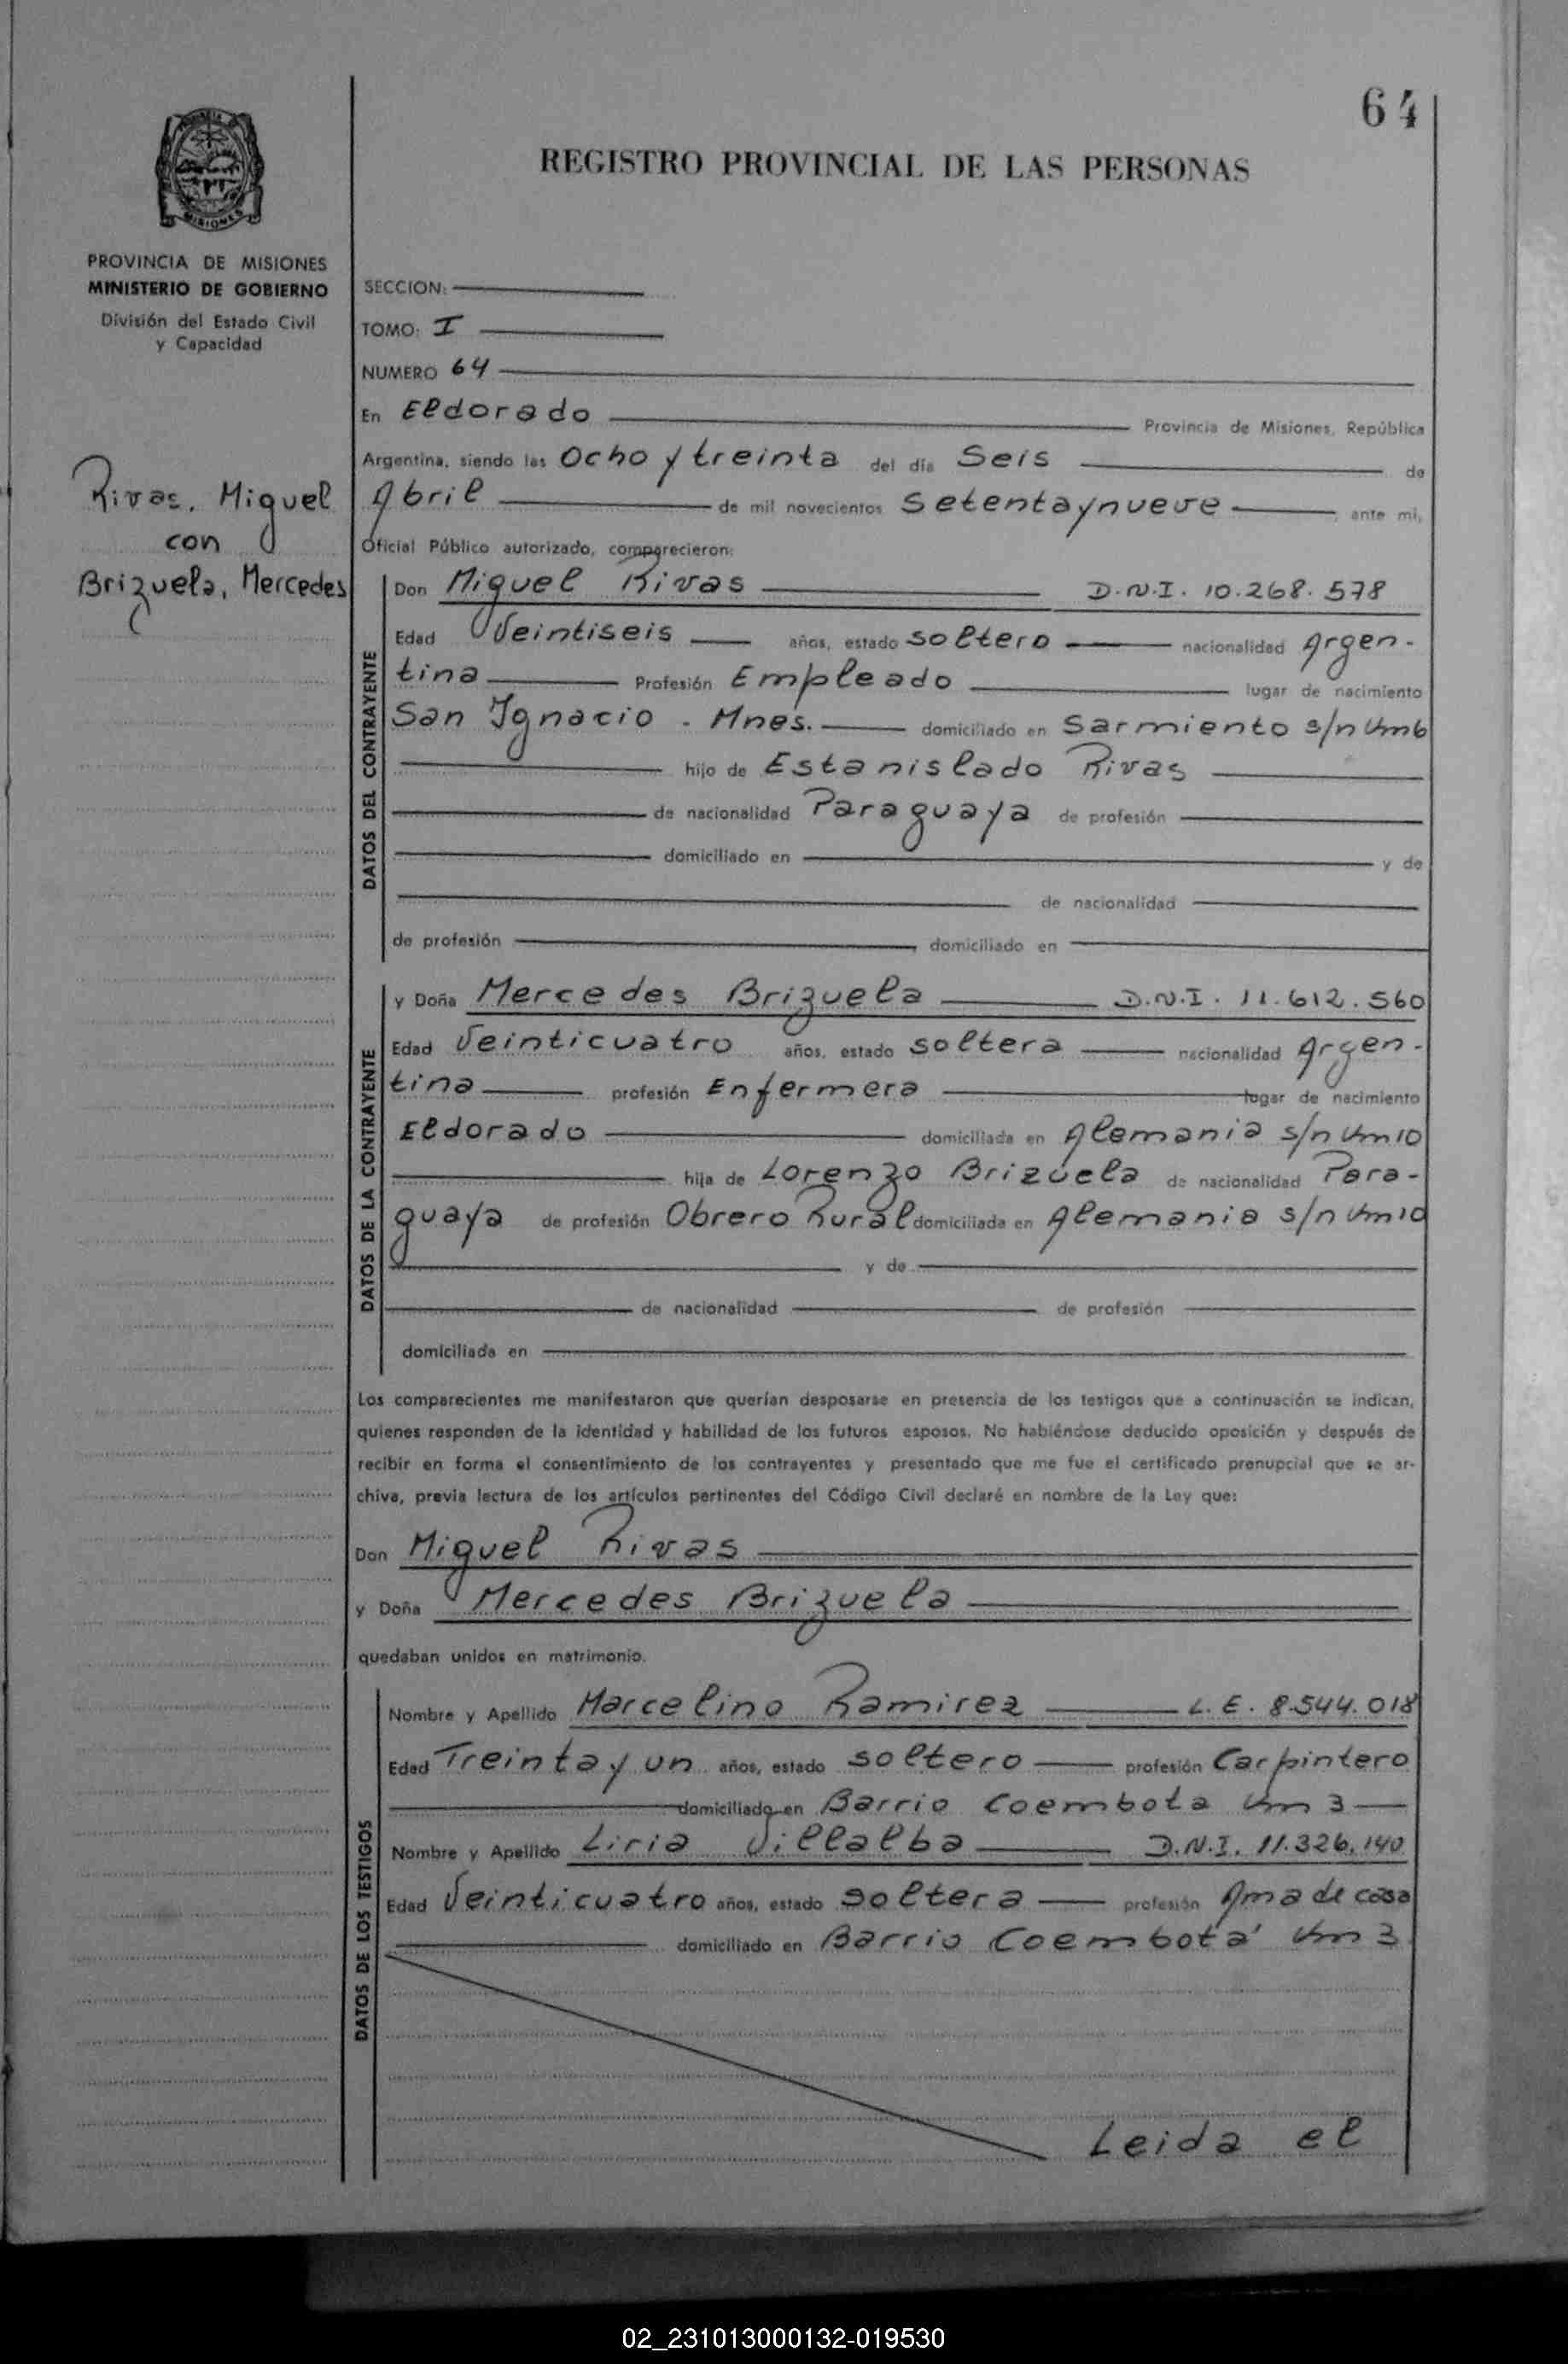 64
REGISTRO PROVINCIAL DE LAS PERSONAS
MISIONES
PROVINCIA DE MISIONES
MINISTERIO DE GOBIERNO
División del Estado Civil
y Capacidad
Rivas, Miguel
con
Brizuela, Mercedes
SECCION:
TOMO: I
NUMERO 64
En Eldorado Provincia de Misiones, República
Argentina, siendo las Ocho y treinta del día Seis de
Abril de mil novecientos Setenta y nueve ante mi,
Oficial Público autorizado, comparecieron:
DATOS DEL CONTRAYENTE
Don Miguel Rivas D.N.I. 10.268.578
Edad Veintiseis años, estado soltero nacionalidad Argen-
tina Profesión Empleado lugar de nacimiento
San Ignacio - Mnes. domiciliado en Sarmiento s/n Km6
hijo de Estanislado Rivas
de nacionalidad Paraguaya de profesión
domiciliado en y de
de nacionalidad
de profesión domiciliado en
DATOS DE LA CONTRAYENTE
y Doña Mercedes Brizuela D.N.I. 11.612.560
Edad Veinticuatro años, estado soltera nacionalidad Argen-
tina profesión Enfermera lugar de nacimiento
Eldorado domiciliada en Alemania s/n Km10
hija de Lorenzo Brizuela de nacionalidad Para-
guaya de profesión Obrero Rural domiciliada en Alemania s/n Km10
y de
de nacionalidad de profesión
domiciliada en
Los comparecientes me manifestaron que querían desposarse en presencia de los testigos que a continuación se indican,
quienes responden de la identidad y habilidad de los futuros esposos. No habiéndose deducido oposición y después de
recibir en forma el consentimiento de los contrayentes y presentado que me fue el certificado prenupcial que se ar-
chiva, previa lectura de los artículos pertinentes del Código Civil declaré en nombre de la Ley que:
Don Miguel Rivas
y Doña Mercedes Brizuela
quedaban unidos en matrimonio.
DATOS DE LOS TESTIGOS
Nombre y Apellido Marcelino Ramirez L.E. 8.544.018
Edad Treinta y un años, estado soltero profesión Carpintero
domiciliado en Barrio Coembota Km 3
Nombre y Apellido Liria Villalba D.N.I. 11.326.140
Edad Veinticuatro años, estado soltera profesión Ama de casa
domiciliado en Barrio Coembotá Km 3
Leida el
02_231013000132-019530